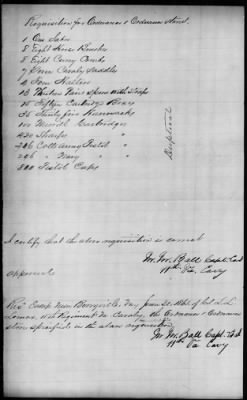 Requisition for Ordnance & Ordnance Stores.
1 One Sabre
8 Eight Horse Brushes
8 Eight Curry Combs
4 Four Cavalry Saddles
4 Four Halters
13 Thirteen Pair Spurs with Straps
15 Fifteen Cartridge Boxes
35 Thirty five Haversacks
100 Merrill Cartridges
420 Sharps "
246 Colts Army Pistol "
246 " Navy "
500 Pistol Caps
I certify that the above requisition is correct
M. M. Ball Capt. Co. I
11th Va. Cavy
approved
Rec'd Camp near Berryville Va, June 20, 1863 of Col L. L.
Lomax, 11th Regiment Va. Cavalry the Ordnance & Ordnance
stores specified in the above requisition
M. M. Ball Capt. Co. I
11th Va Cavy